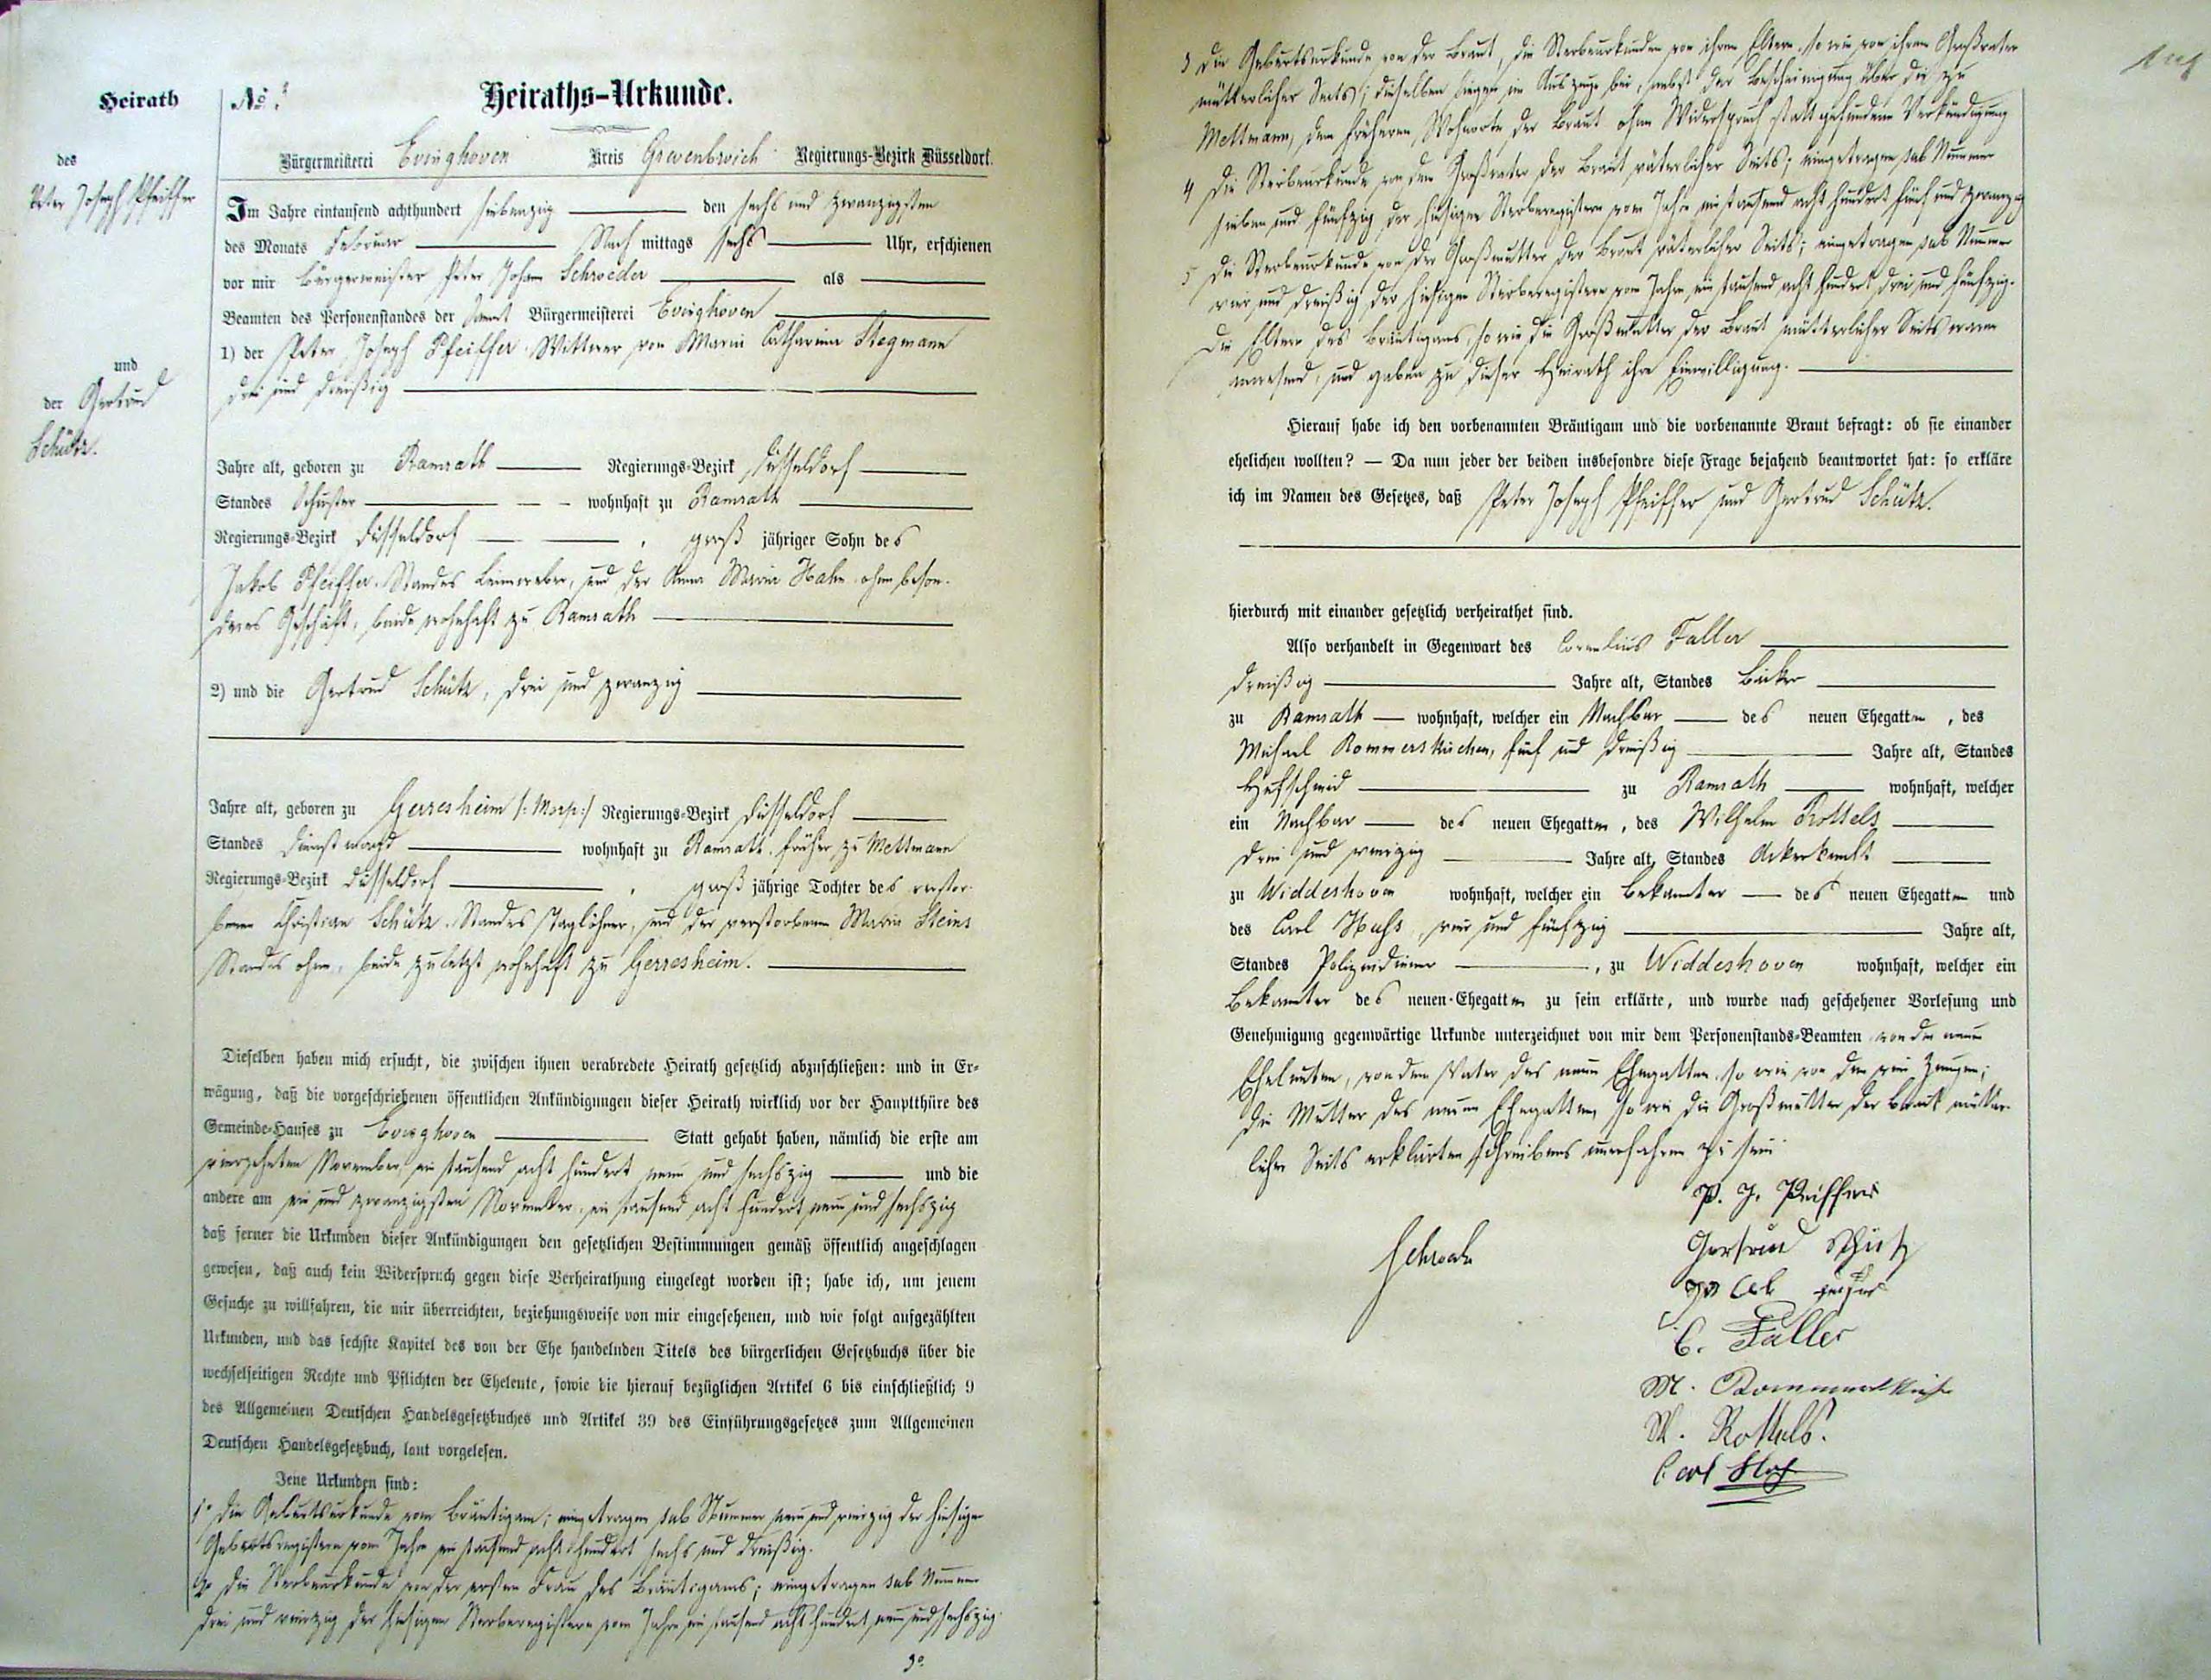 Heirath
des
Peter Joseph Pfeiffer
und
der Gertrud
Schütz.
No.
Heiraths-Urkunde.
Bürgermeisterei Evinghoven Kreis Grevenbroich Regierungs-Bezirk Düsseldorf.
Im Jahre eintausend achthundert siebenzig den sechs und zwanzigsten
des Monats Februar Nach mittags sechs Uhr, erschienen
vor mir Bürgermeister Peter Johann Schroeder als
Beamten des Personenstandes der Samt Bürgermeisterei Evinghoven
1) der Peter Joseph Pfeiffer Wittwer von Maria Catharina Stegmann
drei und dreißig
Jahre alt, geboren zu Ramrath Regierungs-Bezirk Düsseldorf
Standes Schuster wohnhaft zu Ramrath
Regierungs-Bezirk Düsseldorf, groß jähriger Sohn des
Jakob Pfeiffer Standes Leinweber, und der Anna Maria Hahn ohne beson-
deres Geschäft, beide wohnhaft zu Ramrath
2) und die Gertrud Schütz, drei und zwanzig
Jahre alt, geboren zu Gerresheim /: Morp :/ Regierungs-Bezirk Düsseldorf
Standes Dienstmagd wohnhaft zu Ramrath früher zu Mettmann
Regierungs-Bezirk Düsseldorf, groß jährige Tochter des verstor-
benen Christian Schütz Standes Taglöhner, und der verstorbenen Maria Steins
Standes ohne, beide zuletzt wohnhaft zu Gerresheim.
Dieselben haben mich ersucht, die zwischen ihnen verabredete Heirath gesetzlich abzuschließen: und in Er-
wägung, daß die vorgeschriebenen öffentlichen Ankündigungen dieser Heirath wirklich vor der Hauptthüre des
Gemeinde-Hauses zu Evinghoven Statt gehabt haben, nämlich die erste am
vierzehnten November ein tausend acht hundert neun und sechszig und die
andere am ein und zwanzigsten November ein tausend acht hundert neun und sechszig
daß ferner die Urkunden dieser Ankündigungen den gesetzlichen Bestimmungen gemäß öffentlich angeschlagen
gewesen, daß auch kein Widerspruch gegen diese Verheirathung eingelegt worden ist; habe ich, um jenem
Gesuche zu willfahren, die mir überreichten, beziehungsweise von mir eingesehenen, und wie folgt aufgezählten
Urkunden, und das sechste Kapitel des von der Ehe handelnden Titels des bürgerlichen Gesetzbuchs über die
wechselseitigen Rechte und Pflichten der Eheleute, sowie die hierauf bezüglichen Artikel 6 bis einschließlich 9
des Allgemeinen Deutschen Handelsgesetzbuches und Artikel 39 des Einführungsgesetzes zum Allgemeinen
Deutschen Handelsgesetzbuch, laut vorgelesen.
Jene Urkunden sind:
1° die Geburtsurkunde vom Bräutigam; eingetragen sub Nummer neun und vierzig der hiesigen
Geburtsregistern vom Jahre ein tausend acht hundert sechs und dreißig.
2° die Sterbeurkunde von der ersten Frau des Bräutigams; eingetragen sub Nummer
drei und vierzig der hiesigen Sterberegistern vom Jahre ein tausend acht hundert neun und sechszig.
3°
3 die Geburtsurkunde von der Braut, die Sterbeurkunden von ihren Eltern, so wie von ihrem Großvater
mütterlicher Seits; dieselben liegen im Auszuge bei, nebst der Bescheinigung über die zu
Mettmann, dem früheren Wohnorte der Braut ohne Widerspruch stattgefundene Verkündigung
4 die Sterbeurkunde von dem Großvater der Braut väterlicher Seits; eingetragen sub Nummer
sieben und fünfzig der hiesigen Sterberegistern vom Jahre ein tausend acht hundert fünf und zwanzig
5 die Sterbeurkunde von der Großmutter der Braut väterlicher Seits; eingetragen sub Nummer
vier und dreißig der hiesigen Sterberegistern vom Jahre ein tausend acht hundert drei und fünfzig.
Die Eltern des Bräutigams, so wie die Großmutter der Braut mütterlicher Seits waren
anwesend, und gaben zu dieser Heirath ihre Einwilligung.
Hierauf habe ich den vorbenannten Bräutigam und die vorbenannte Braut befragt: ob sie einander
ehelichen wollten? — Da nun jeder der beiden insbesondre diese Frage bejahend beantwortet hat: so erkläre
ich im Namen des Gesetzes, daß Peter Joseph Pfeiffer und Gertrud Schütz.
hierdurch mit einander gesetzlich verheirathet sind.
Also verhandelt in Gegenwart des Cornelius Faller
dreißig Jahre alt, Standes Bäcker
zu Ramrath wohnhaft, welcher ein Nachbar des neuen Ehegatten, des
Michael Rommerskirchen, fünf und dreißig Jahre alt, Standes
Hufschmid zu Ramrath wohnhaft, welcher
ein Nachbar des neuen Ehegatten, des Wilhelm Rottels
drei und vierzig Jahre alt, Standes Ackerknecht
zu Widdeshoven wohnhaft, welcher ein Bekannter des neuen Ehegatten und
des Carl Huss, vier und fünfzig Jahre alt,
Standes Polizeidiener, zu Widdeshoven wohnhaft, welcher ein
Bekannter des neuen Ehegatten zu sein erklärte, und wurde nach geschehener Vorlesung und
Genehmigung gegenwärtige Urkunde unterzeichnet von mir dem Personenstands-Beamten von den neuen
Eheleuten, von dem Vater des neuen Ehegatten so wie von den vier Zeugen;
die Mutter des neuen Ehegatten, so wie die Großmutter der Braut mütter-
licher Seits erklärten Schreibens unerfahren zu sein
P. J. Peiffer
Gertrud Schütz
Schroeder
C. Faller
M. Rommerskirchen
W. Rottels.
Carl